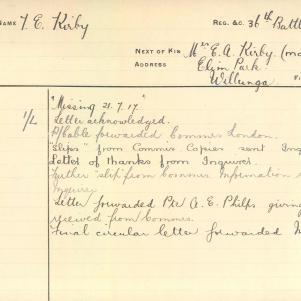 NAME T. E. Kirby REG. &C. 36th Battl
NEXT OF KIN Mrs E. A. Kirby (mo
ADDRESS Elzin Park
Willunga
1/L "Missing 21.7.17."
Letter acknowledged.
P/Cable forwarded Commrs London.
"Slips" from Commrs Copies sent Inq
Letter of thanks from Inquirer.
Further "slip" from Commrs Information s
Inquirer
Letter forwarded Pte A. E. Philps giving
received from Commrs.
Final circular letter forwarded